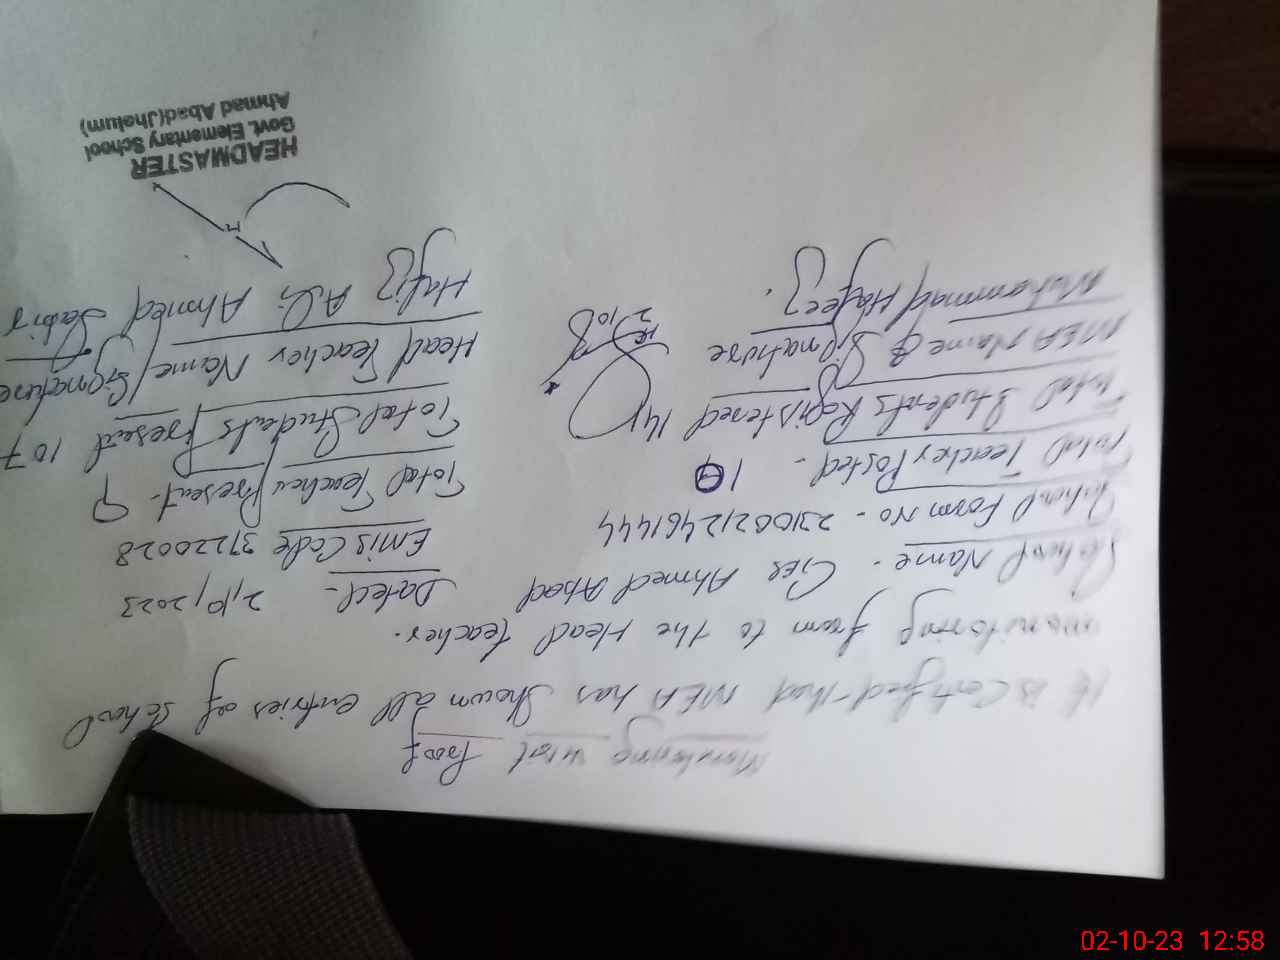 Monitoring visit Proof
It is certified that MEA has shown all entries of school
monitoring from to the Head Teacher.
School Name - GES Ahmed Abad Dated - 2,10,2023
School Form No - 23100212461444 Emis Code 37220028
Total Teacher Posted - 10 Total Teacher Present - 9
Total Students Registered 141 Total Students Present 107
MEA Name & Signature Head Teacher Name/Signature
Muhammad Hafeez. Hafiz Ali Ahmed Sabir
HEADMASTER
Govt. Elementary School
Ahmad Abad(Jhelum)
02-10-23 12:58